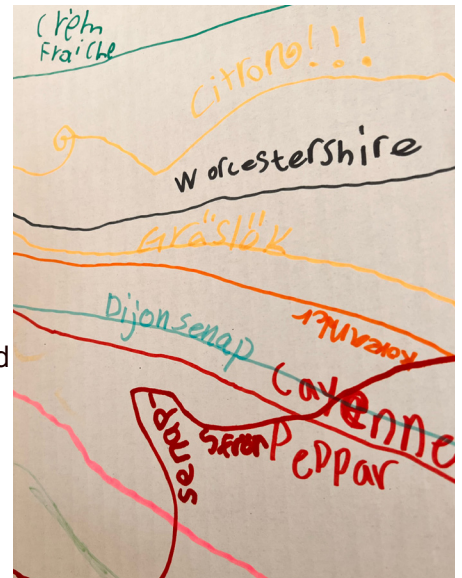 crèm
Fraiche
Citrong!!!
Worcestershire
Gräslök
Koriander
Dijonsenap
Cayenne
Peppar
senap
d